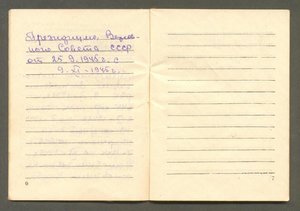 Президиума Верхов-
ного Совета СССР
от 25.9.1945 г. с
9.XI-1945 г.
6
7